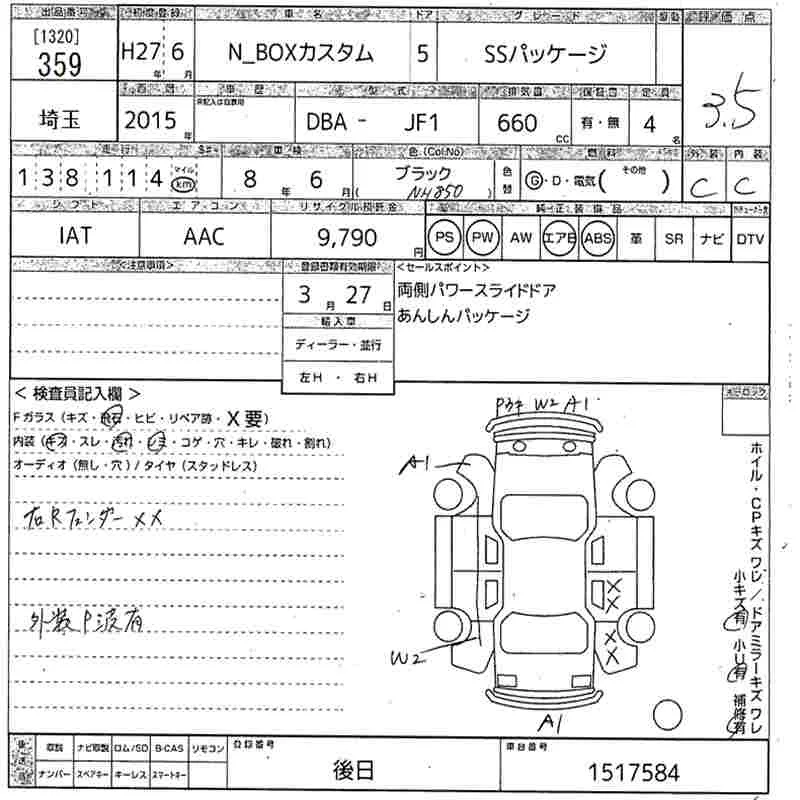 出品番号 初度登録 車名 ドア グレード 評価点
[1320]
359 H27年 6月 N_BOXカスタム 5 SSパッケージ 3.5
車歴 型式 排気量 定員
埼玉 2015年 未記入は自家用 DBA - JF1 660cc 有・無 4名
走行 車検 色(ColNo) 燃料 外装 内装
138,114 マイル km 8年 6月 ブラック NH850 色替 G・D・電気(その他) C C
シフト エアコン リサイクル預託金 純正装備品
IAT AAC 9,790円 PS PW AW エアB ABS 革 SR ナビ DTV
<注意事項> 登録書類有効期限 <セールスポイント>
3月 27日 両側パワースライドドア
輸入車 あんしんパッケージ
ディーラー・並行
左H ・ 右H
< 検査員記入欄 >
Fガラス(キズ・飛石・ヒビ・リペア跡・X要)
内装(キズ・スレ・汚れ・シミ・コゲ・穴・キレ・破れ・割れ)
オーディオ(無し・穴)/タイヤ(スタッドレス)
右Rフェンダー XX
外装P波有
W2 A1
A1
X
X
X
X
W2
A1
ホイル・CPキズワレ/ドアミラーキズワレ
小キズ有 小U有 補修有
後送品 取説 ナビ取説 ロム/SD B-CAS リモコン 登録番号 車台番号
ナンバー スペアキー キーレス スマートキー 後日 1517584